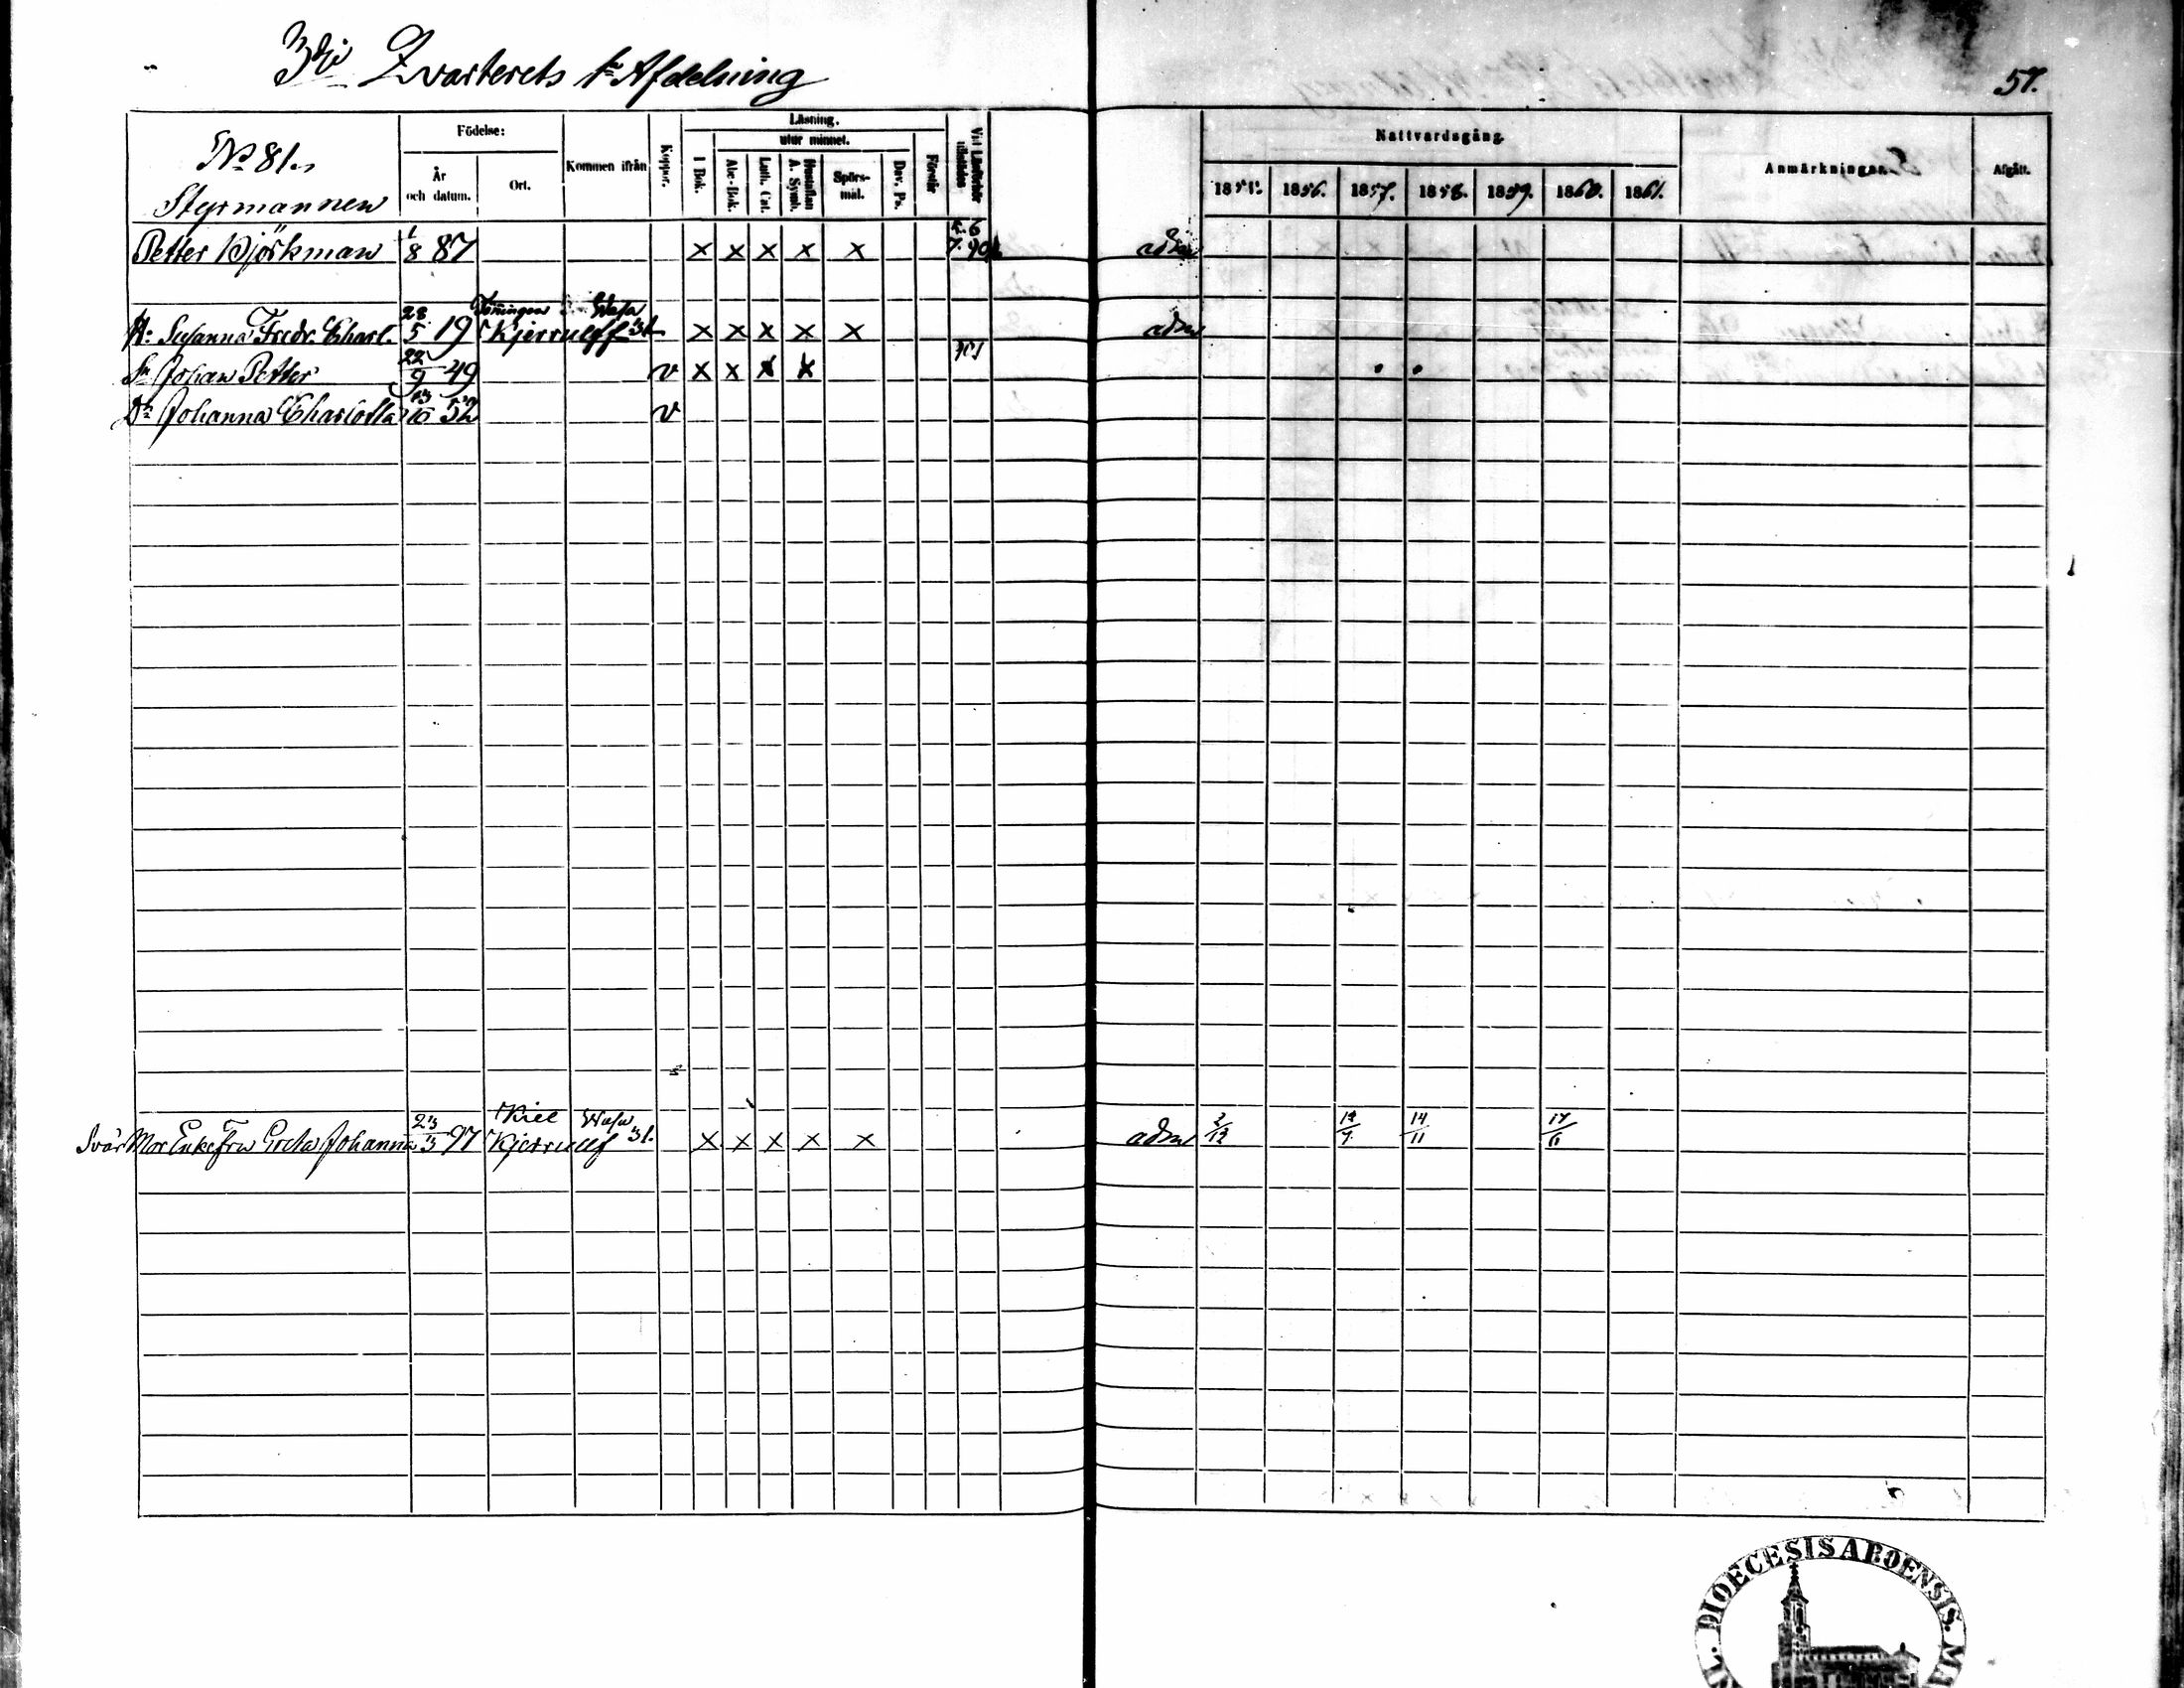 3die Qvarterets 1a Afdelning
57.
No 81.
Styrmannen
Födelse:
År och datum.
Ort.
Kommen ifrån
Koppor.
Läsning.
utur minnet.
I Bok.
Abc-Bok.
Luth. Cat.
Hustaflan A. Symb.
Spörs-mål.
Dav. Ps.
Förstår
Vid Läsförhör tillstädes
Nattvardsgång.
1855. 1856. 1857. 1858. 1859. 1860. 1861.
Anmärkningar.
Afgått.
Petter Björkman 1/8 87 x x x x x adm
H: Susanna Fredr. Charl. 28/5 19 Kjerrulff Wasa 31 x x x x x adm
Sn Johan Petter 22/9 49 v x x x x
Dr Johanna Charlotta 13/10 52 v
Svär Mor Enke Fru Greta Johanna 23/3 97 Kiel Kjerrulff Wasa 31. x x x x x adm 14/11
DIOECESIS ABOENSIS.